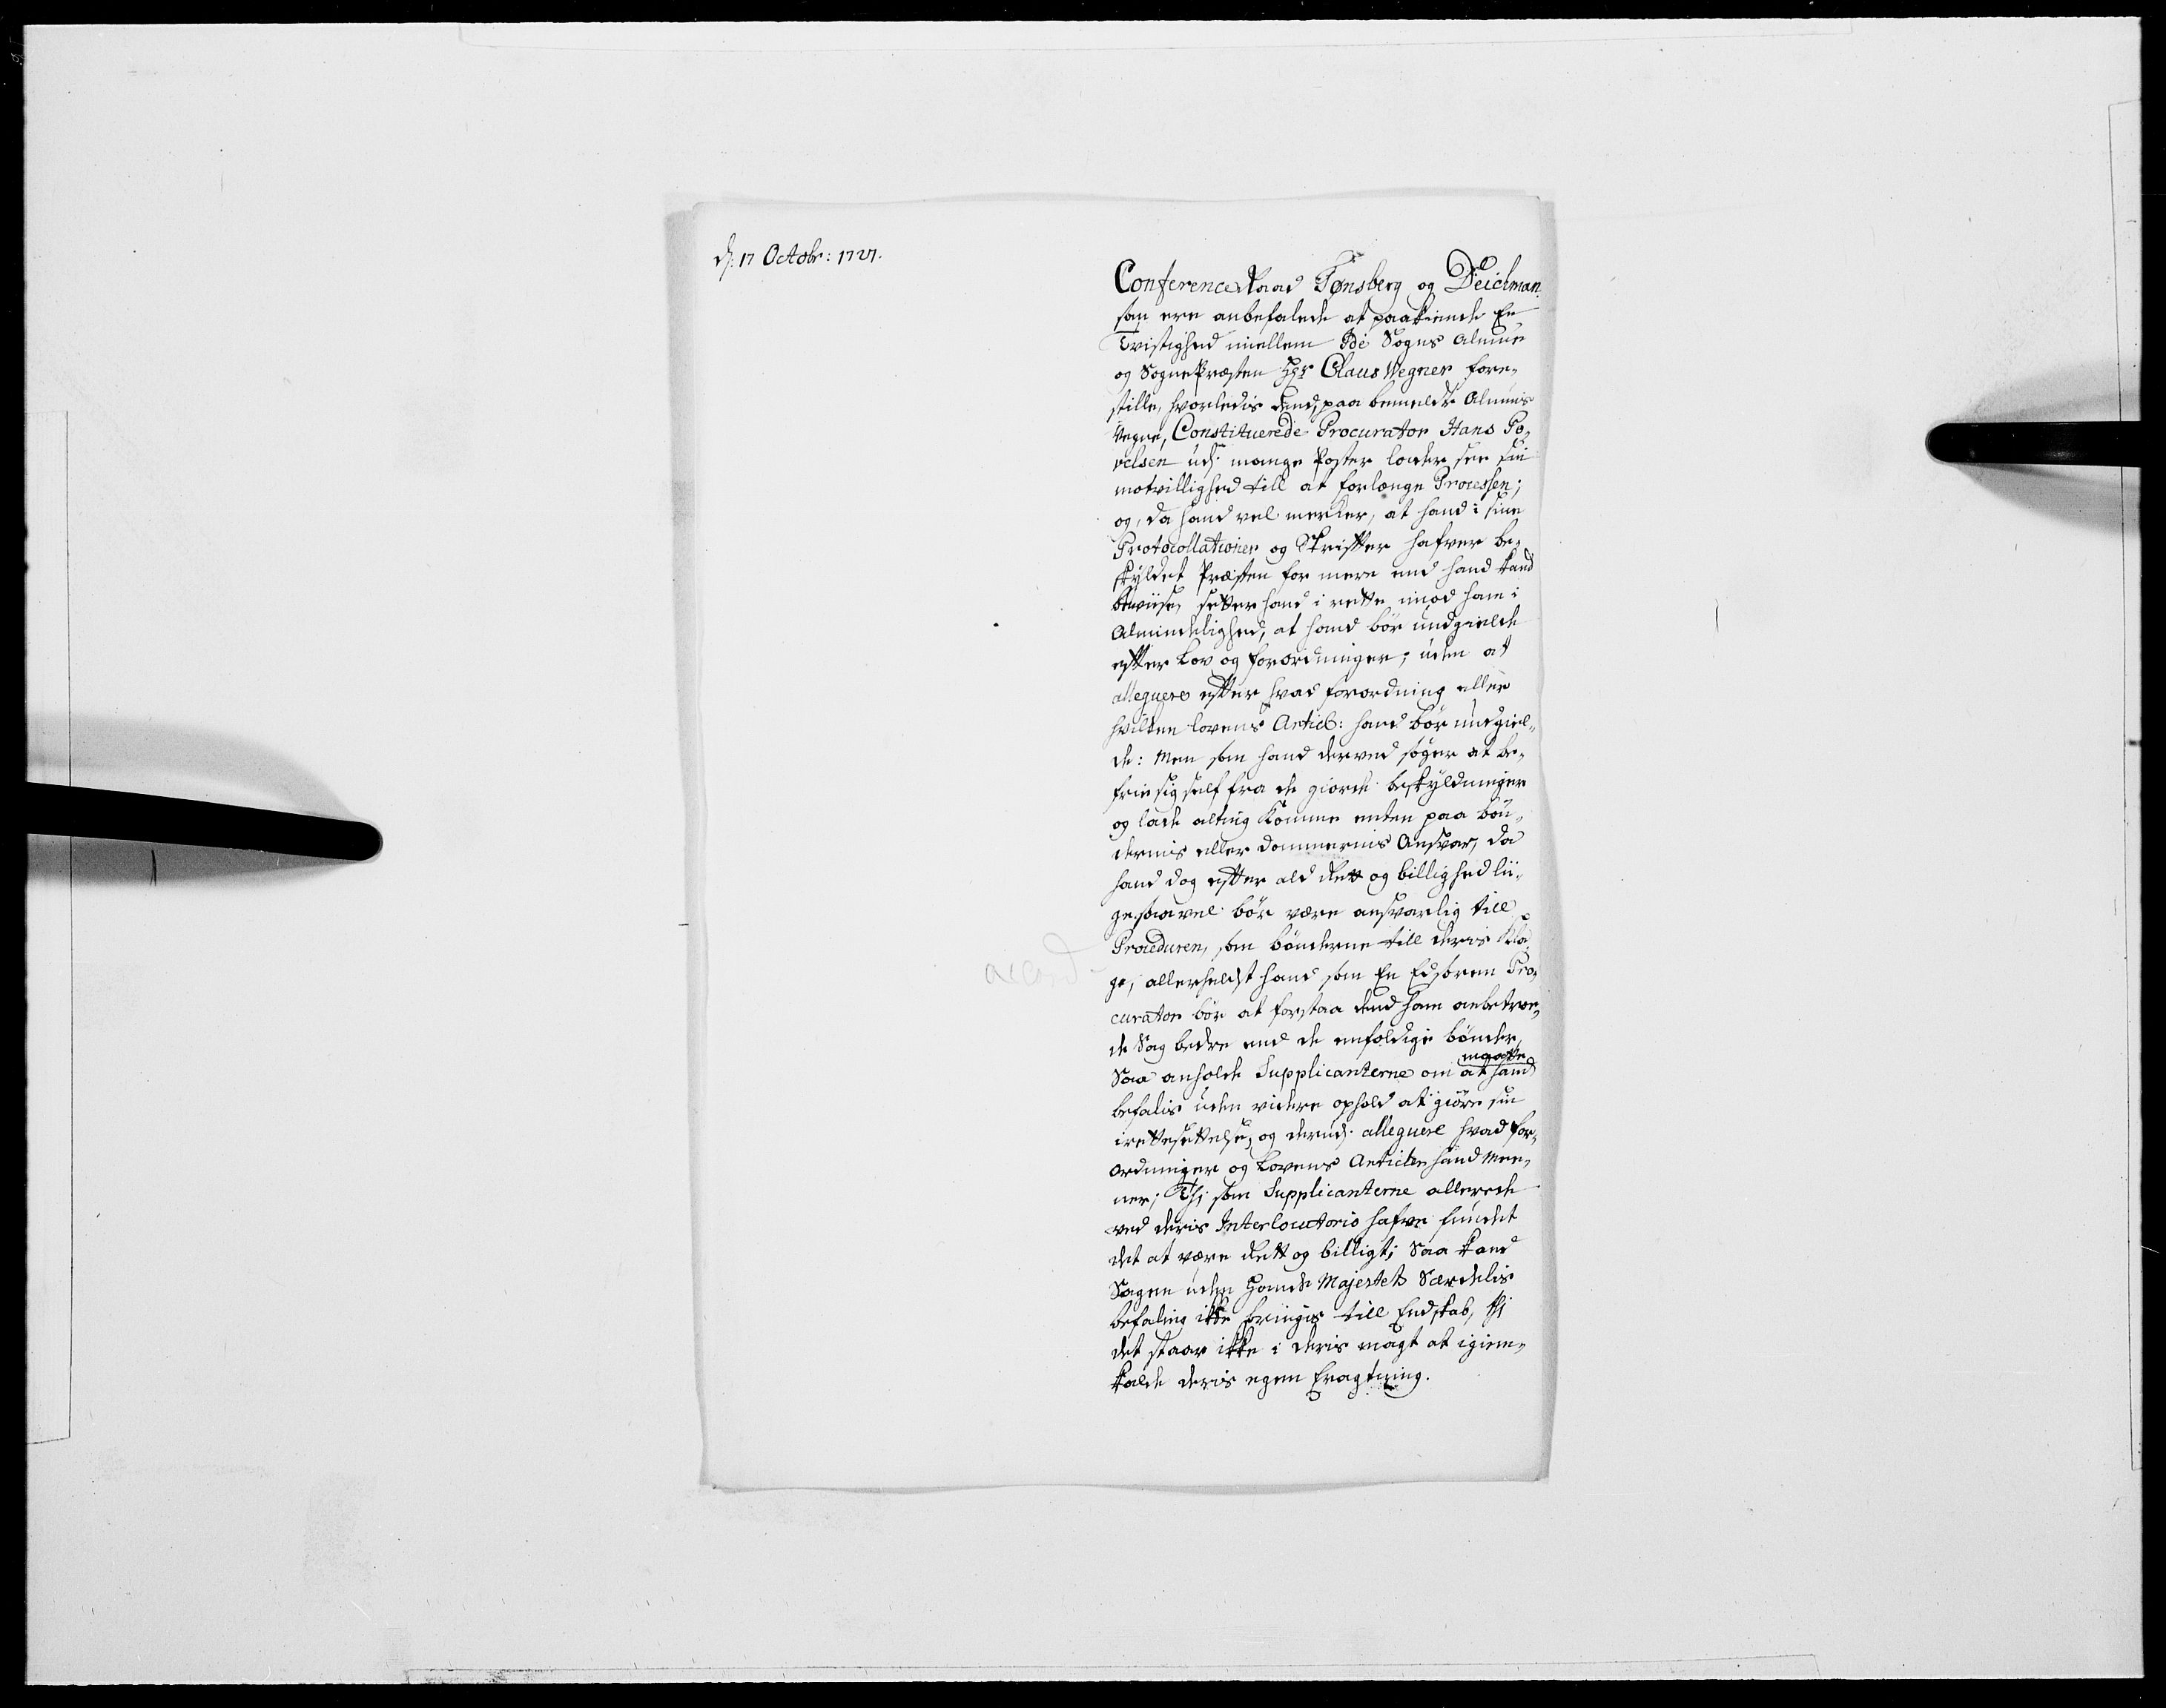 d: 17 Octobr: 1727.
ConferenceRaad Tønsberg og Deichman
som ere anbefalede at paakiende En
Tvistighed imellem Ide Sogns Almue
og SognePræsten Hr Claus Wegner fore-
stille, hvorledis dend, paa bemeldte Almuis
Vegne, Constituerede Procurator Hans Po-
velsen udj mange Poster lader see sin
motvillighed till at forlænge Processen;
og, da hand vel mercker, at hand i sine
Protocollationer og Skrifter hafver be-
skyldet Præsten for mere end hand kand
beviise, setter hand i rette imod ham i
Almindelighed, at hand bør undgielde
efter Lov og forordninger, uden at
alleguere efter hvad forordning eller
hvilken lovens Articl: hand bør undgiel-
de: Men som hand derved søger at be-
frie sig self fra de giorde beskyldninger
og lade alting komme enten paa bøn-
dernis eller dommernis Ansvar, da
hand dog efter ald Rett og billighed lii-
gesaavel bør være ansvarlig till
Proceduren, som bønderne till deris Kla-
ge, allerhelst hand som En Edsoren Pro-
curator bør at forstaa dend ham anbetroe-
de Sag bedre end de enfoldige bønder,
Saa anholde Supplicanterne om at hand
maatte
befalis uden videre ophold at giøre sin
irettesettelse, og derudj alleguere hvad for-
ordninger og Lovens Articler hand mee-
ner; Thj som Supplicanterne allerede
ved deris Interlocutorio hafve fundet
det at være Rett og billigt; Saa kand
Sagen uden Hands Majestets Særdelis
befaling ikke bringis till Endskab, thj
det staar ikke i deris magt at igien-
kalde deris egen Eragtning.
accord